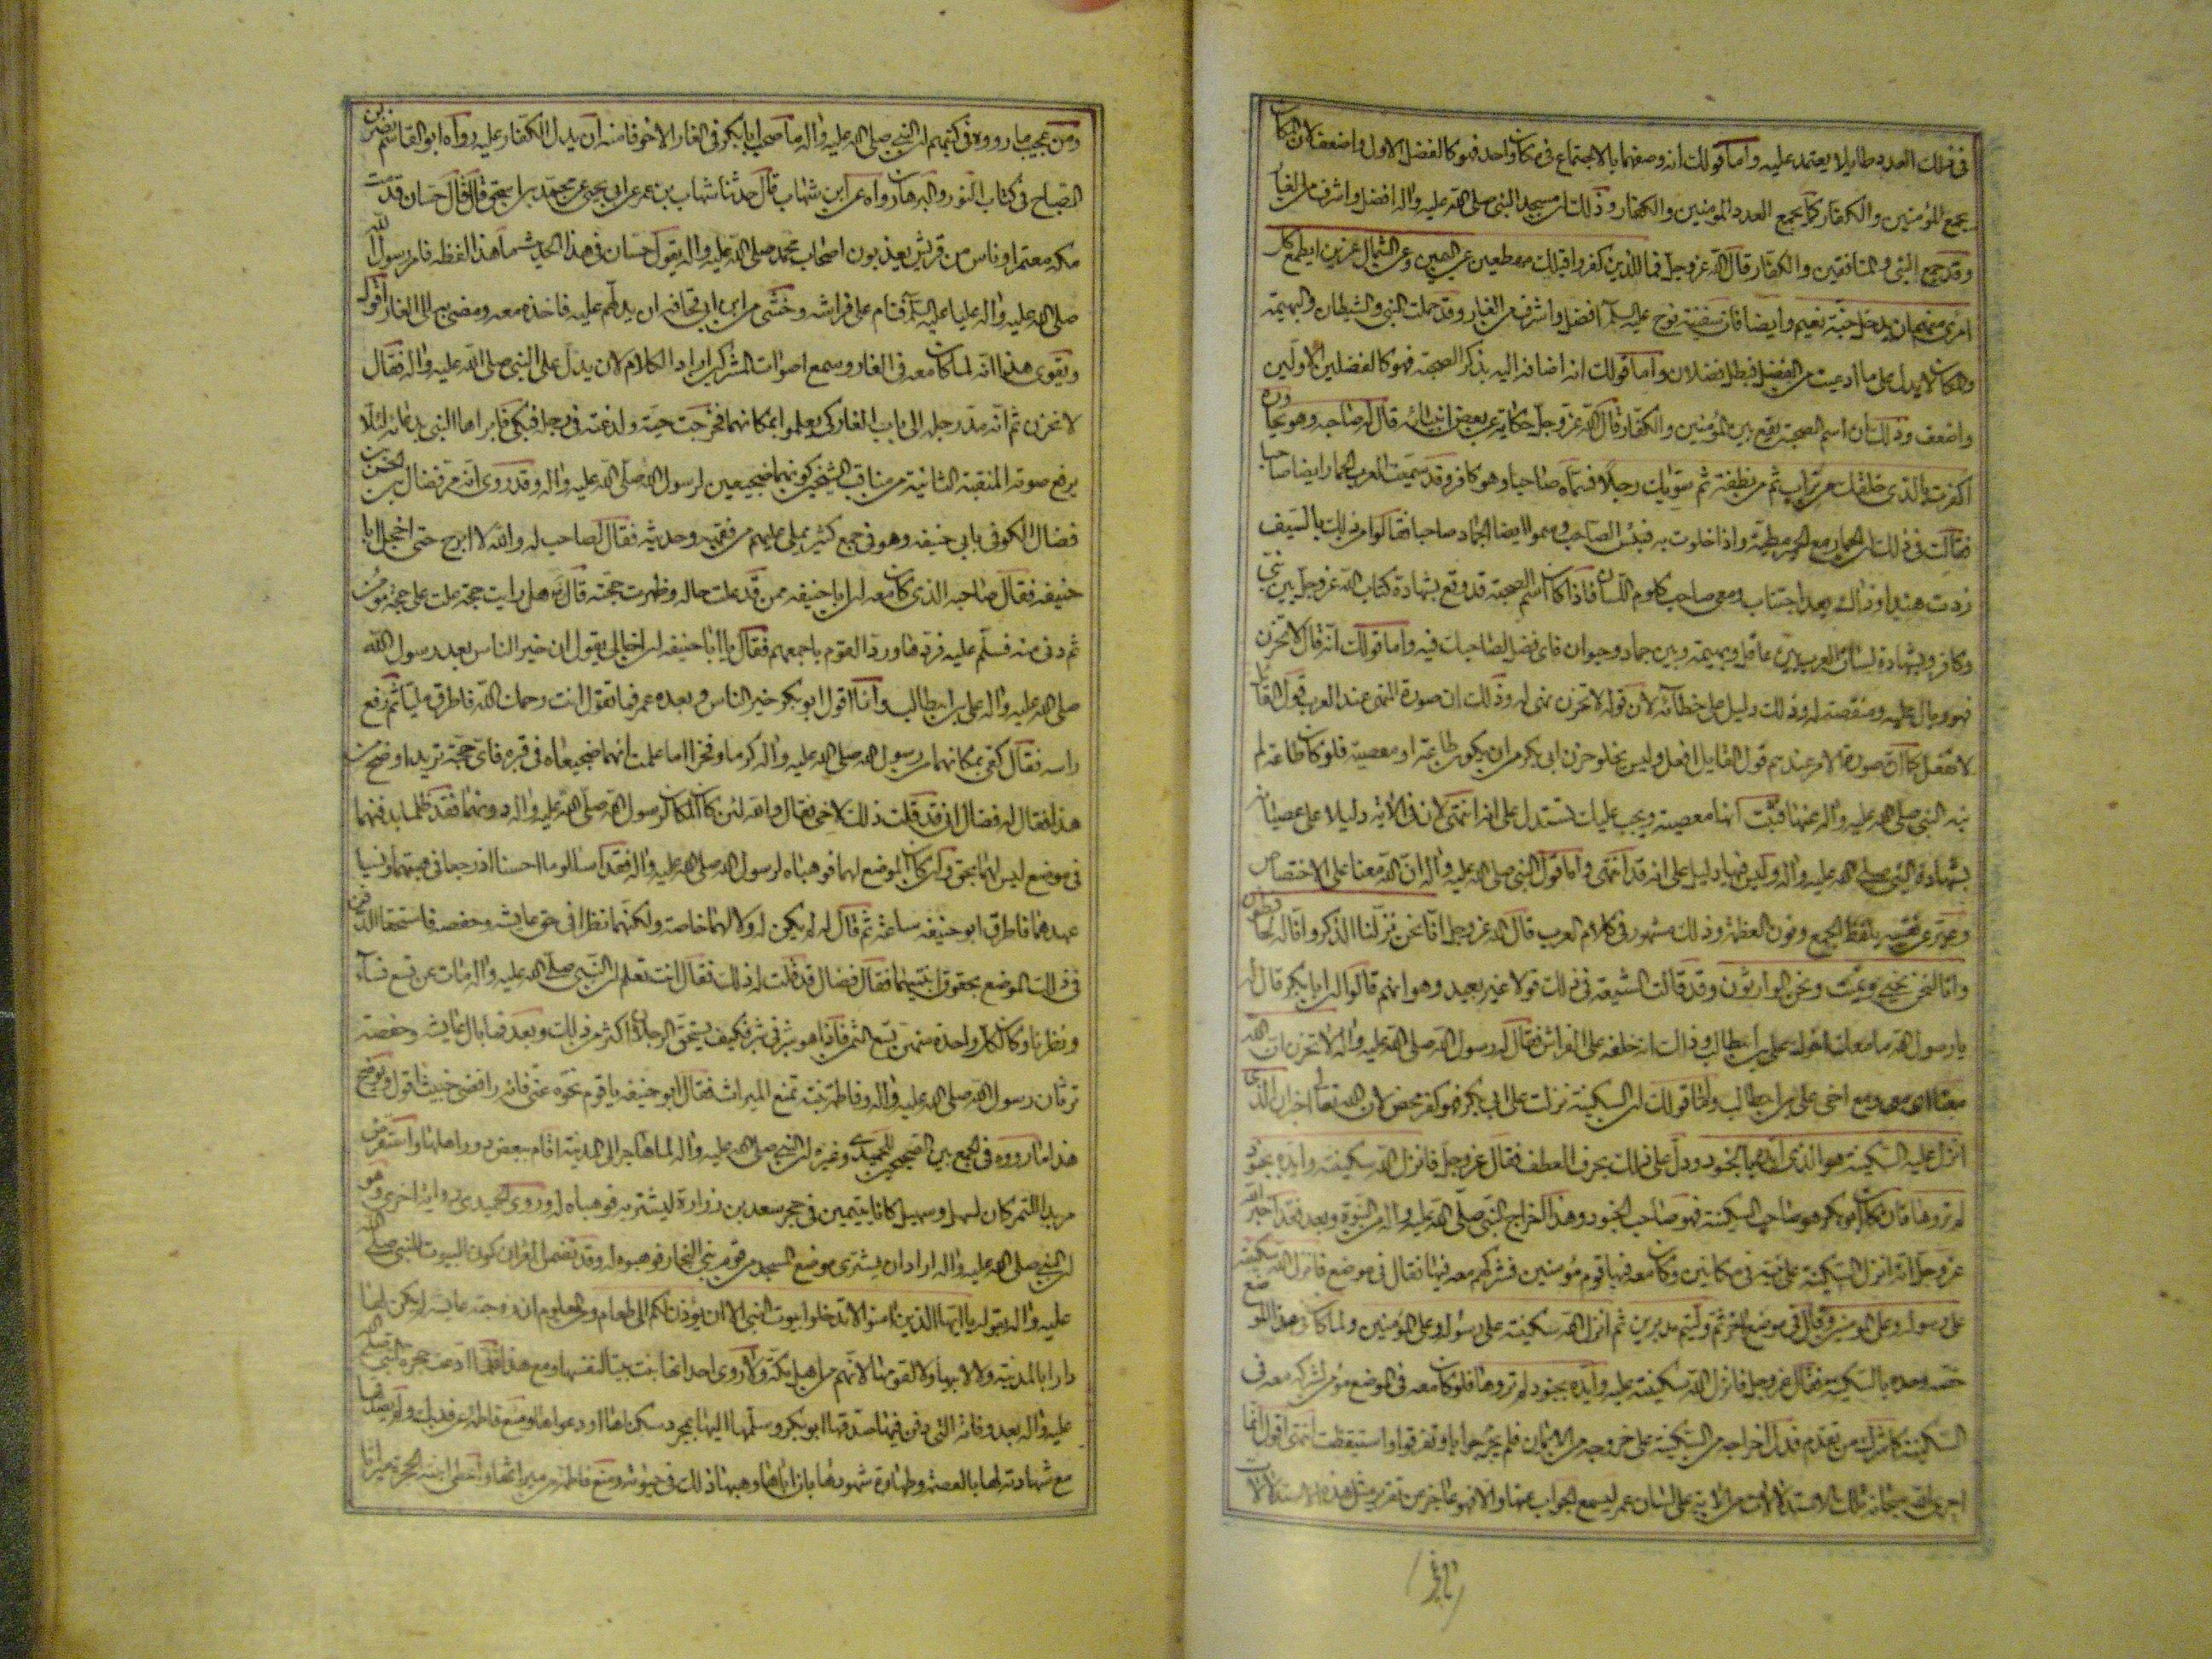 في ذلك العدد طايلا يعتمد عليه واما قولك انه وصفهما بالاجتماع في مكان واحد فهو كالفضل الاول واضعف لان المكان
يجمع المؤمنين والكفار كما يجمع العدد المؤمنين والكفار وذلك ان مسجد النبي صلى الله عليه واله افضل واشرف من الغار
وقد جمع النبي والمنافقين والكفار قال الله عز وجل فمال الذين كفروا قبلك مهطعين عن اليمين وعن الشمال عزين ايطمع كل
امرئ منهم ان يدخل جنة نعيم وايضا فان سفينة نوح عليه السلم افضل واشرف من الغار وقد حملت النبي والشيطان والبهيمة
والمكان لا يدل على ما ادعيت من الفضل فبطل فضلان واما قولك انه اضافه اليه بذكر الصحبة فهو كالفضلين الاولين
واضعف وذلك ان اسم الصحبة يقع بين المؤمنين والكفار قال الله عز وجل حكاية عن بعض انبيائه قال له صاحبه وهو يحاوره
اكفرت بالذي خلقك من تراب ثم من نطفة ثم سويك رجلا فسماه صاحبا وهو كافر وقد سميت العرب الحمار ايضا صاحبا
فقالت في ذلك ان الحمار مع الحمار مطية واذا خلوت به فبئس الصاحب وسموا ايضا الجماد صاحبا فقالوا من ذلك بالسيف
زرت هندا وذاك بعد اجتناب ومعي صاحب كلوم اللسان فاذا كان اسم الصحبة قد وقع بشهادة كتاب الله عز وجل بين نبي
وكافر وبشهادة لسان العرب بين عاقل وبهيمة وبين جماد وحيوان فاي فضل لصاحبك فيه واما قولك انه قال لا تحزن
فهو وبال عليه ومنقصة له وذلك دليل على خطائه لان قوله لا تحزن نهي له وذلك ان صورة النهي عند العرب قول القايل
لا تفعل كما ان صورة الامر عندهم قول القايل افعل وليس يخلو حزن ابي بكر من ان يكون طاعة او معصية فلو كان طاعة لم
ينه النبي صلى الله عليه واله عنها فثبت انها معصية ويجب عليك تستدل على انه انتهى لان في الاية دليلا على عصيانه
بشهادة النبي صلى الله عليه واله وليس فيها دليل على انه قد انتهى واما قول النبي صلى الله عليه واله ان الله معنا على الاختصاص
وعبر عن نفسه بلفظ الجمع ونون العظمة وذلك مشهور في كلام العرب قال الله عز وجل انا نحن نزلنا الذكر وانا له لحافظون
وانا لنحن نحيي ونميت ونحن الوارثون وقد قالت الشيعة في ذلك قولا غير بعيد وهو انهم قالوا ان ابا بكر قال له
يا رسول الله ما معك اخوك علي بن ابيطالب وذلك انه خلفه على الفراش فقال له رسول الله صلى الله عليه واله لا تحزن ان الله
معنا اي معي ومع اخي علي بن ابيطالب واما قولك ان السكينة نزلت على ابي بكر فهو كفر محض لان الله تعالى اخبر ان الذي
انزل عليه السكينة هو الذي ايده بالجنود ودل على ذلك بحرف العطف فقال عز وجل فانزل الله سكينته وايده بجنود
لم تروها فان كان ابو بكر هو صاحب السكينة فهو صاحب الجنود وهذا اخراج النبي صلى الله عليه واله من النبوة وبعد فقد اخبر الله
عز وجل انه انزل السكينة على نبيه في مكانين وكان معه فيها قوم مؤمنين فشركهم معه فيها فقال في موضع فانزل الله سكينته
على رسوله وعلى المؤمنين وقال في موضع اخر ثم وليتم مدبرين ثم انزل الله سكينته على رسوله وعلى المؤمنين ولما كان في هذا الموضع
خصه وحده بالسكينة فقال عز وجل فانزل الله سكينته عليه وايده بجنود لم تروها فلو كان معه في الموضع مؤمن لشركه معه في
السكينة كما شرك من تقدم فدل اخراجه من السكينة على خروجه من الايمان فلم يحر جوابا وتفرقوا واستيقظت انتهى اقول انما
اجرى الله سبحانه تلك الاستدلالات من الاية على لسان عمر ليسمع الجواب عنها والا فهو عاجز عن تقرير مثل هذه الاستدلالات
ومن عجيب ما رووه في كتبهم ان النبي صلى الله عليه واله ما صحب ابا بكر في الغار الا خوفا منه ان يدل الكفار عليه رواه ابو القاسم نصر بن
الصباح في كتاب النور والبرهان رواه عن ابن شهاب قال حدثنا شهاب بن عمر عن ابي يحيى عن محمد بن اسحق قال قال حسان قدمت
مكة معتمرا وناس من قريش يعذبون اصحاب محمد صلى الله عليه واله يقول حسان في هذا الحديث ما هذا لفظه فامر رسول الله
صلى الله عليه واله عليا عليه السلم فنام على فراشه وخشي من ابن ابي قحافة ان يدلهم عليه فاخذه معه ومضى به الى الغار اقول
ويقوى هذا انه لما كان معه في الغار وسمع اصوات المشركين اراد الكلام لان يدل على النبي صلى الله عليه واله فقال
لا تحزن ثم انه مد رجله الى باب الغار كي يعلموا بمكانهما فخرجت حية ولدغته في رجله فبكى فابراها النبي بدعائه لئلا
يرفع صوته المنقبة الثانية من مناقب الشيخين كونهما ضجيعين لرسول الله صلى الله عليه واله وقد روى انه مر فضال بن الحسن بن
فضال الكوفي بابي حنيفة وهو في جمع كثير يملي عليهم من فقهه وحديثه فقال لصاحب له والله لا ابرح حتى اخجل ابا
حنيفة فقال صاحبه الذي كان معه ان ابا حنيفة ممن قد علت حاله وظهرت حجته قال مه هل رايت حجة علت على حجة مؤمن
ثم دنى منه فسلم عليه فردها ورد القوم باجمعهم فقال يا ابا حنيفة ان اخا لي يقول ان خير الناس بعد رسول الله
صلى الله عليه واله علي بن ابيطالب وانا اقول ابو بكر خير الناس وبعده عمر فما تقول انت رحمك الله فاطرق مليا ثم رفع
راسه فقال كفى بمكانهما من رسول الله صلى الله عليه واله كرما وفخرا اما علمت انهما ضجيعاه في قبره فاي حجة تريد اوضح من
هذا فقال له فضال اني قد قلت ذلك لاخي فقال والله لئن كان المكان لرسول الله صلى الله عليه واله دونهما فقد ظلما بدفنهما
في موضع ليس لهما بحق وان كان الموضع لهما فوهباه لرسول الله صلى الله عليه واله فقد اساءا وما احسنا اذ رجعا في هبتهما ونسيا
عهدهما فاطرق ابو حنيفة ساعة ثم قال له لم يكن له ولا لهما خاصة ولكنهما نظرا في حق عايشة وحفصة فاستحقا الدفن
في ذلك الموضع بحقوق ابنتيهما فقال فضال قد قلت له ذلك فقال انت تعلم ان النبي صلى الله عليه واله مات عن تسع نساء
ونظرنا وكان لكل واحدة منهن تسع الثمن فاذا هو شبر في شبر فكيف يستحق الرجلان اكثر من ذلك وبعد فما بال عايشة وحفصة
ترثان رسول الله صلى الله عليه واله وفاطمة بنته تمنع الميراث فقال ابو حنيفة يا قوم نحوه عني فانه رافضي خبيث اقول ويوضح
هذا ما رووه في الجمع بين الصحيحين للحميدي وغيره ان النبي صلى الله عليه واله لما هاجر الى المدينة اقام ببعض دور اهلها واستقرض
مربدا للتمر كان لسهل وسهيل كانا يتيمين في حجر سعد بن زرارة ليشتريه فوهباه له وروى الحميدي رواية اخرى وهو
ان النبي صلى الله عليه واله اراد ان يشتري موضع المسجد من قوم من بني النجار فوهبوه له وقد تضمن القران كون البيوت للنبي صلى الله
عليه واله بقوله يا ايها الذين امنوا لا تدخلوا بيوت النبي الا ان يؤذن لكم الى طعام ومن المعلوم ان زوجته عايشة لم يكن لها
دارا بالمدينة ولا لابيها ولا لقومها لانهم من اهل مكة ولا روى احد انها بنت بيتا لنفسها ومع هذا فلما ادعت حجرة النبي صلى الله
عليه واله بعد وفاته التي دفن فيها صدقها ابو بكر وسلمها اليها بمجرد سكناها او دعواها ومنع فاطمة عن فدك ولم يصدقها
مع شهادته لها بالعصمة وطهارة شهودها بان اباها وهبها ذلك في حيوته ومنع فاطمة من ميراثها واعطى ابنته الحجرة ميراثا